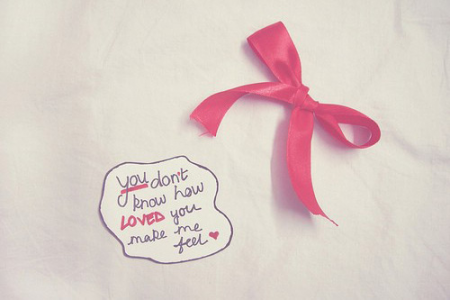 you don't
know how
LOVED you
make me
feel ♥